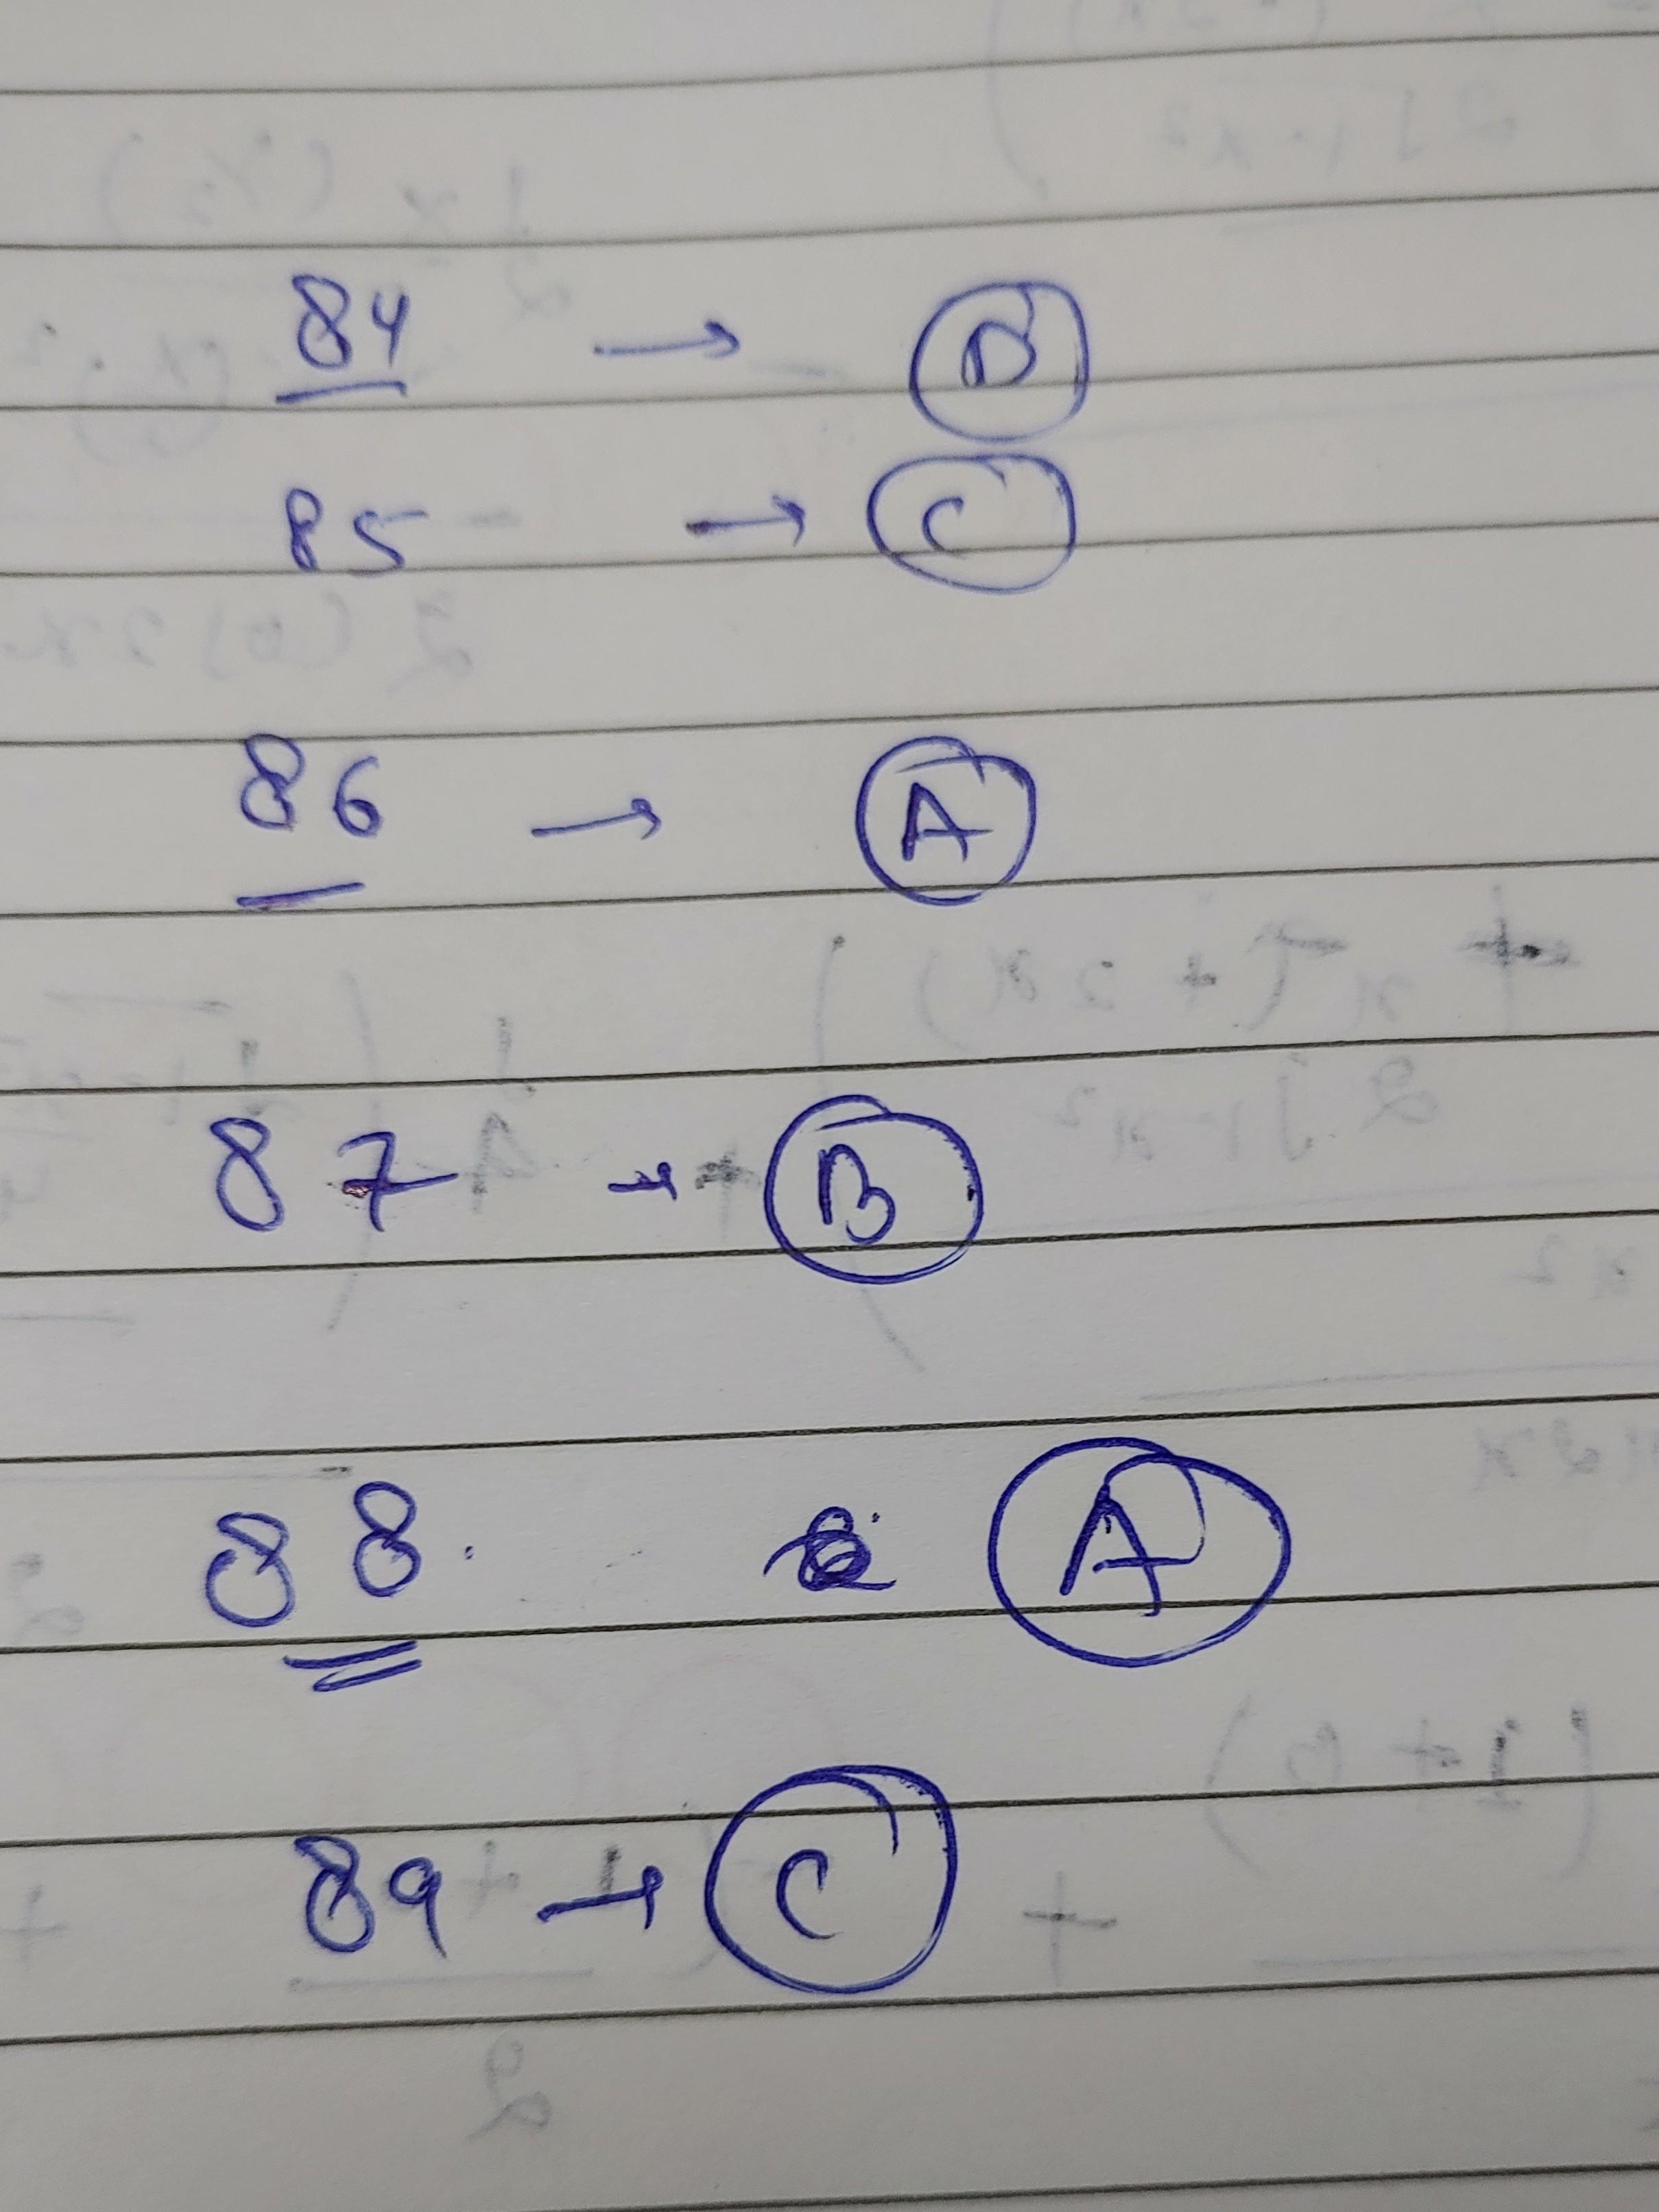 84 → D
85 → C
86 → A
87 → B
88. A
89 → C